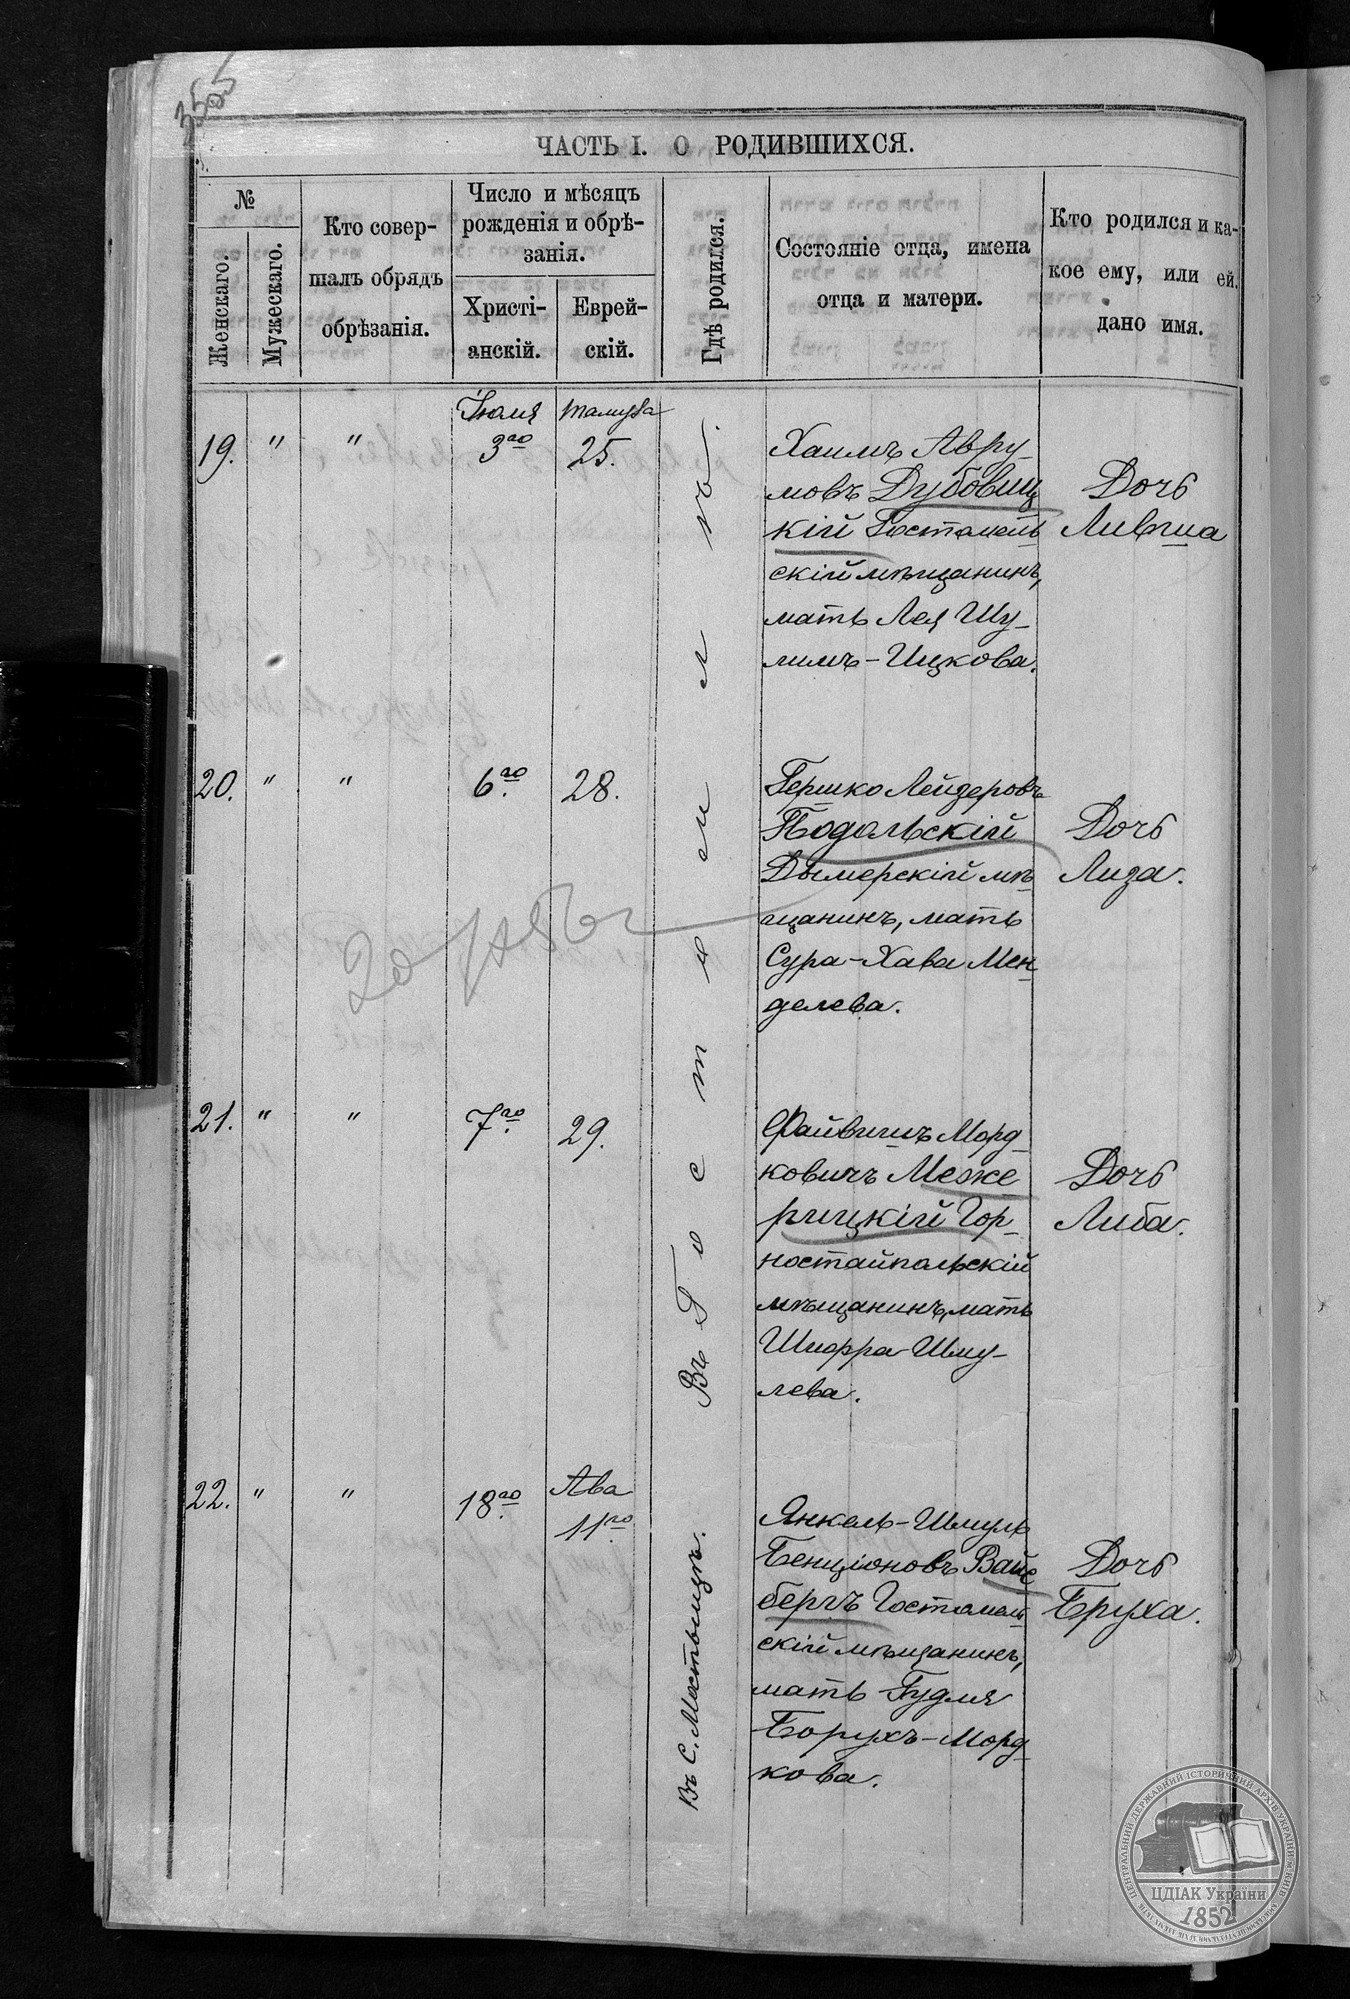 ЧАСТЬ I. О РОДИВШИХСЯ.
№
Женскаго.
Мужескаго.
Кто совер-
шалъ обрядъ
обрѣзанія.
Число и мѣсяцъ
рожденія и обрѣ-
занія.
Христі-
анскій.
Еврей-
скій.
Гдѣ родился.
Состояніе отца, имена
отца и матери.
Кто родился и ка-
кое ему, или ей,
дано имя.
19. " "
Іюля
3го
тамуза
25.
Въ Гостомлѣ.
Хаимъ Авру-
мовъ Дубовиц
кій Гостомель
скій мѣщанинъ,
мать Лея Шу-
лимъ-Ицкова.
Дочь
20. " "
6го
28.
Гершко Лейзеровъ
Подольскій
Дымерскій мѣ
щанинъ, мать
Сура-Хава Мен
делева.
Дочь
Лиза.
21. " "
7го
29.
Файвишъ Морд
ковичъ Меже
рицкій Гор-
ностайпольскій
мѣщанинъ, мать
Шифра Шму-
лева.
Дочь
Либа.
22. " "
18го
Ава
11го
Въ С. Мостыщахъ.
Янкель-Шмуль
Бенціоновъ Вайс
бергъ Гостомель
скій мѣщанинъ,
мать Гудля
Борухъ-Морд-
кова.
Дочь
Бруха.
ЦЕНТРАЛЬНИЙ ДЕРЖАВНИЙ ІСТОРИЧНИЙ АРХІВ УКРАЇНИ М. КИЇВ
ЦДІАК України
1852